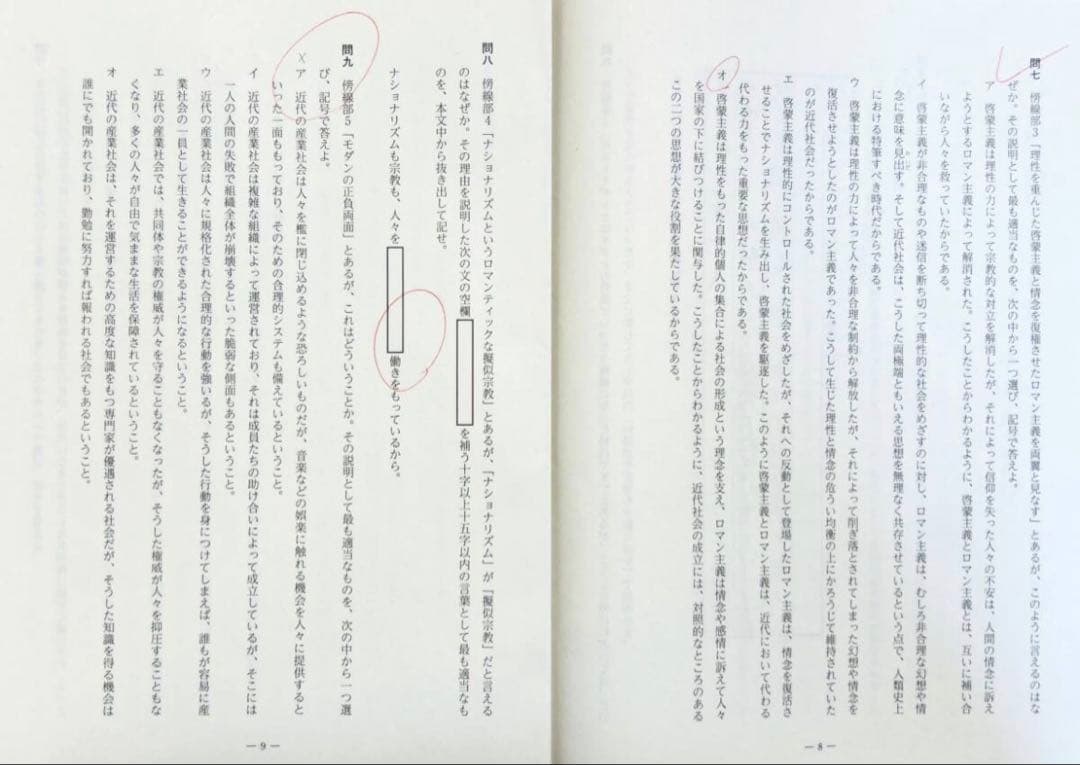 問七 傍線部3「理性を重んじた啓蒙主義と情念を復権させたロマン主義を両翼と見なす」とあるが、このように言えるのはな
ぜか。その説明として最も適当なものを、次の中から一つ選び、記号で答えよ。
ア 啓蒙主義は理性の力によって宗教的な対立を解消したが、それによって信仰を失った人々の不安は、人間の情念に訴え
ようとするロマン主義によって解消された。こうしたことからわかるように、啓蒙主義とロマン主義とは、互いに補い合
いながら人々を救っていたからである。
イ 啓蒙主義が非合理なものや迷信を断ち切って理性的な社会をめざすのに対し、ロマン主義は、むしろ非合理な幻想や情
念に意味を見出す。そして近代社会は、こうした両極端ともいえる思想を無理なく共存させているという点で、人類史上
における特筆すべき時代だからである。
ウ 啓蒙主義は理性の力によって人々を非合理な制約から解放したが、それによって削ぎ落とされてしまった幻想や情念を
復活させようとしたのがロマン主義であった。こうして生じた理性と情念の危うい均衡の上にかろうじて維持されていた
のが近代社会だったからである。
エ 啓蒙主義は理性的にコントロールされた社会をめざしたが、それへの反動として登場したロマン主義は、情念を復活さ
せることでナショナリズムを生み出し、啓蒙主義を駆逐した。このように啓蒙主義とロマン主義は、近代において代わる
代わる力をもった重要な思想だったからである。
オ 啓蒙主義は理性をもった自律的個人の集合による社会の形成という理念を支え、ロマン主義は情念や感情に訴えて人々
を国家の下に結びつけることに関与した。こうしたことからわかるように、近代社会の成立には、対照的なところのある
この二つの思想が大きな役割を果たしているからである。
― 8 ―
問八 傍線部4「ナショナリズムというロマンティックな擬似宗教」とあるが、「ナショナリズム」が「擬似宗教」だと言える
のはなぜか。その理由を説明した次の文の空欄 を補う十字以上十五字以内の言葉として最も適当なも
のを、本文中から抜き出して記せ。
ナショナリズムも宗教も、人々を 働きをもっているから。
問九 傍線部5「モダンの正負両面」とあるが、これはどういうことか。その説明として最も適当なものを、次の中から一つ選
び、記号で答えよ。
ア 近代の産業社会は人々を檻に閉じ込めるような恐ろしいものだが、音楽などの娯楽に触れる機会を人々に提供すると
いった一面ももっており、そのための合理的システムも備えているということ。
イ 近代の産業社会は複雑な組織によって運営されており、それは成員たちの助け合いによって成立しているが、そこには
一人の人間の失敗で組織全体が崩壊するといった脆弱な側面もあるということ。
ウ 近代の産業社会は人々に規格化された合理的な行動を強いるが、そうした行動を身につけてしまえば、誰もが容易に産
業社会の一員として生きることができるようになるということ。
エ 近代の産業社会では、共同体や宗教の権威が人々を守ることもなくなったが、そうした権威が人々を抑圧することもな
くなり、多くの人々が自由で気ままな生活を保障されているということ。
オ 近代の産業社会は、それを運営するための高度な知識をもつ専門家が優遇される社会だが、そうした知識を得る機会は
誰にでも開かれており、勤勉に努力すれば報われる社会でもあるということ。
― 9 ―